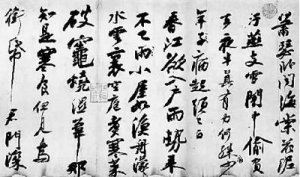 蕭瑟臥聞海棠花泥
汙燕支雪闇中偷負
去夜半真有力何殊少
年子病起頭已白
春江欲入戶雨勢來
不已雨小屋如漁舟濛濛
水雲裏空庖煮寒菜
破竈燒濕葦那
知是寒食但見烏
銜帋 君門深